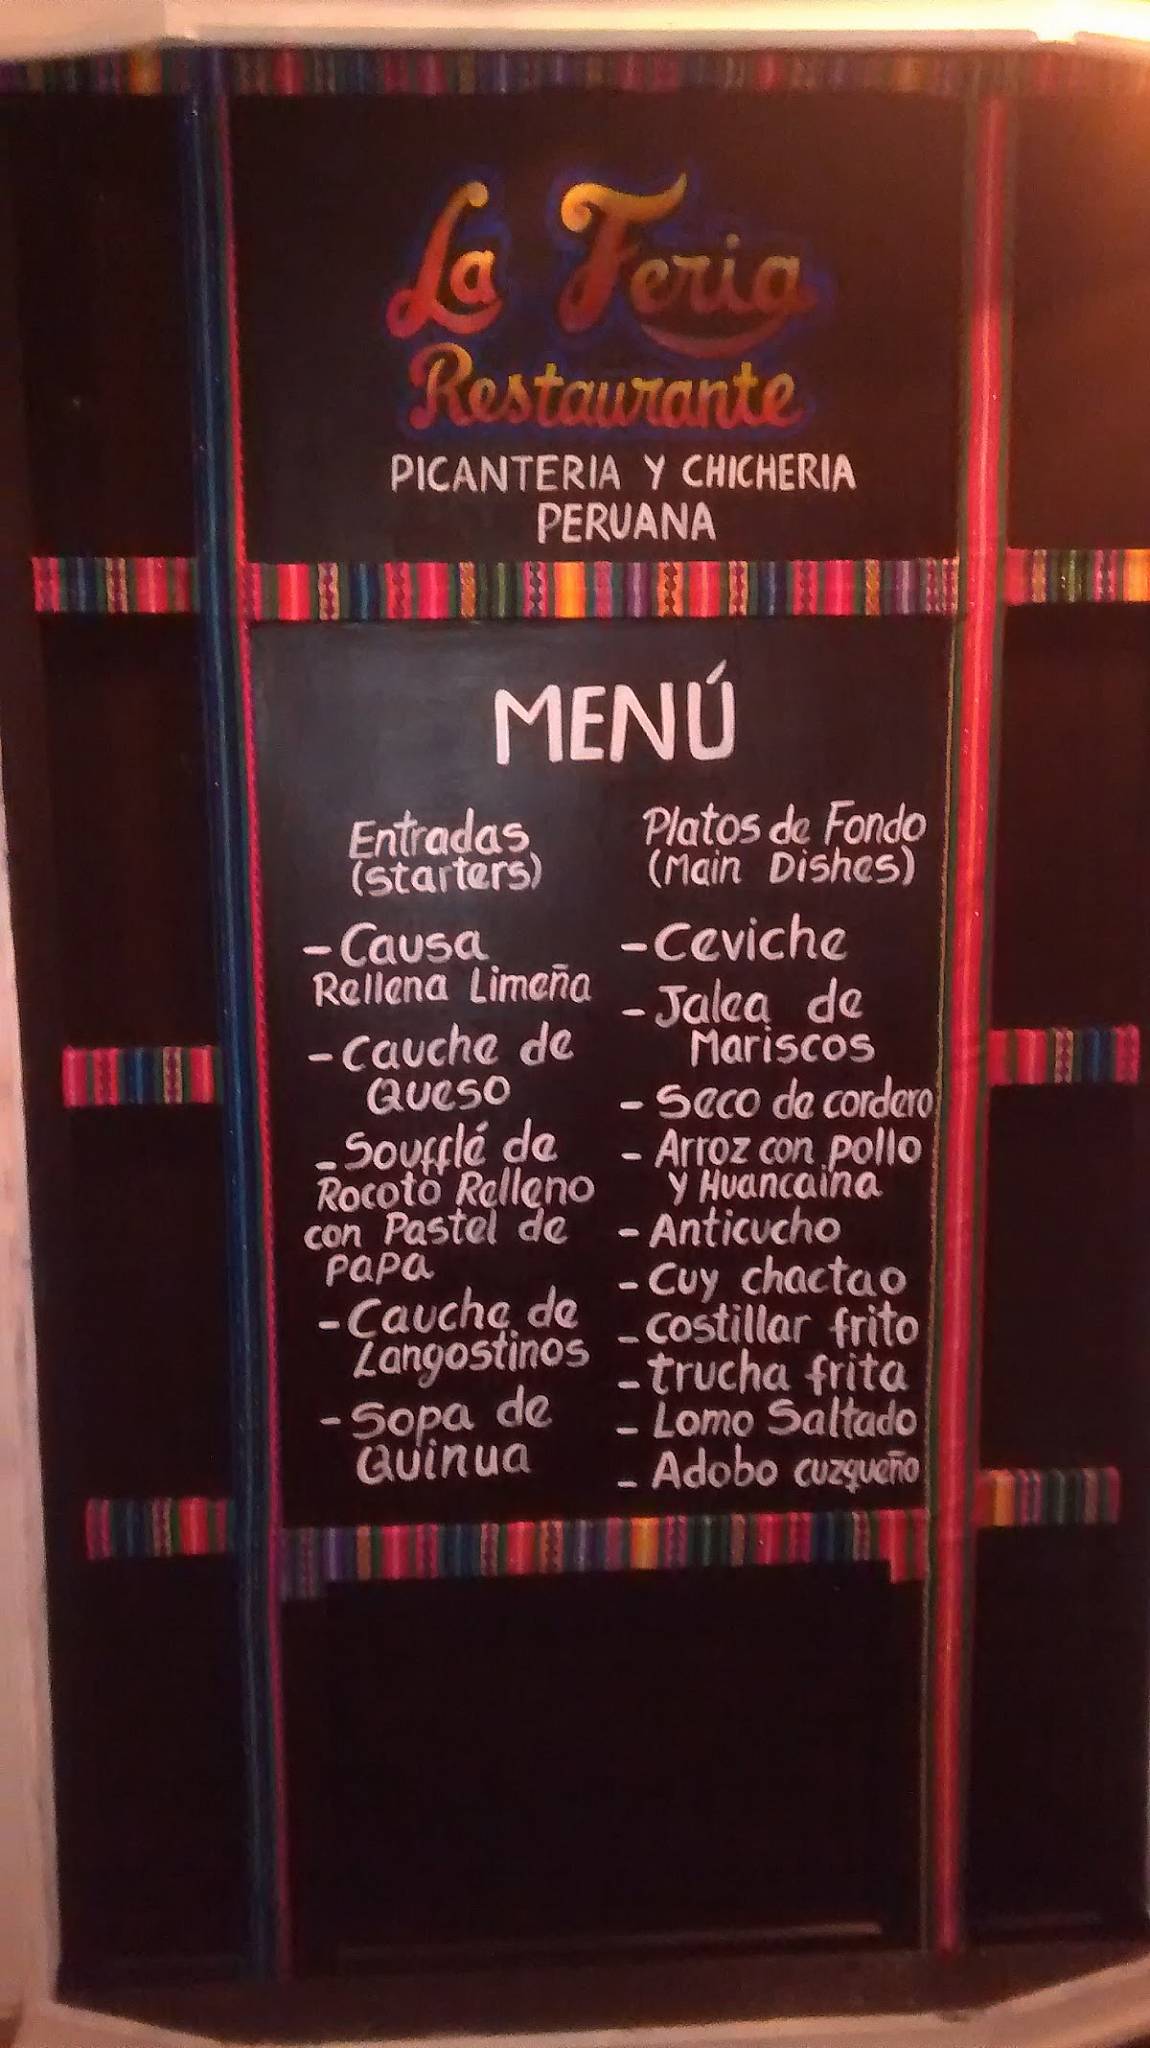 La Feria
Restaurante
PICANTERIA Y CHICHERIA
PERUANA
MENÚ
Entradas
(starters)
- Causa
Rellena Limeña
- Cauche de
Queso
- Soufflé de
Rocoto Relleno
con Pastel de
PAPA
- Cauche de
Langostinos
- Sopa de
Quinua
Platos de Fondo
(Main Dishes)
- Ceviche
- Jalea de
Mariscos
- Seco de cordero
- Arroz con pollo
y Huancaina
- Anticucho
- Cuy chactao
- costillar frito
- trucha frita
- Lomo Saltado
- Adobo cuzqueño